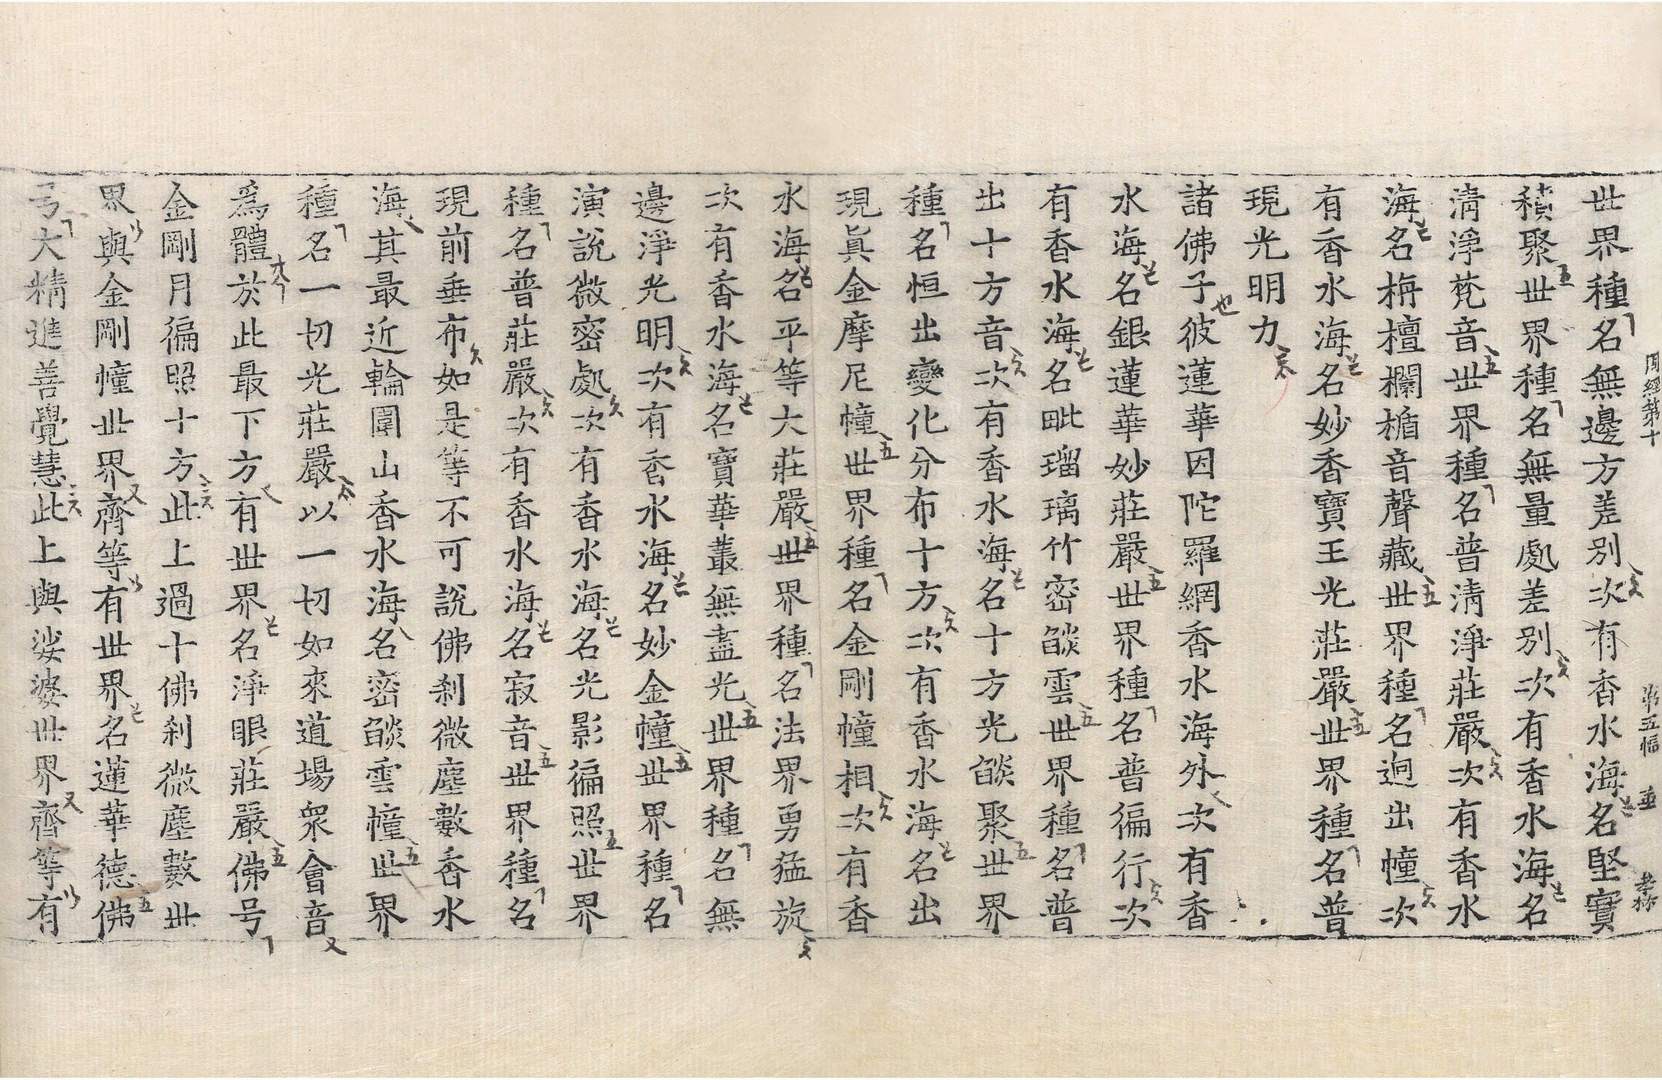 周經第十　第五幅
世界種名無邊方差別次有香水海名堅實
積聚世界種名無量處差別次有香水海名
清淨梵音世界種名普清淨莊嚴次有香水
海名栴檀欄楯音聲藏世界種名逈出幢次
有香水海名妙香寶王光莊嚴世界種名普
現光明力
諸佛子彼蓮華因陀羅網香水海外次有香
水海名銀蓮華妙莊嚴世界種名普徧行次
有香水海名毗瑠璃竹密燄雲世界種名普
出十方音次有香水海名十方光燄聚世界
種名恒出變化分布十方次有香水海名出
現眞金摩尼幢世界種名金剛幢相次有香
水海名平等大莊嚴世界種名法界勇猛旋
次有香水海名寶華叢無盡光世界種名無
邊淨光明次有香水海名妙金幢世界種名
演說微密處次有香水海名光影徧照世界
種名普莊嚴次有香水海名寂音世界種名
現前垂布如是等不可說佛刹微塵數香水
海其最近輪圍山香水海名密燄雲幢世界
種名一切光莊嚴以一切如來道場衆會音
爲體於此最下方有世界名淨眼莊嚴佛号
金剛月徧照十方此上過十佛刹微塵數世
界與金剛幢世界齊等有世界名蓮華德佛
号大精進善覺慧此上與娑婆世界齊等有